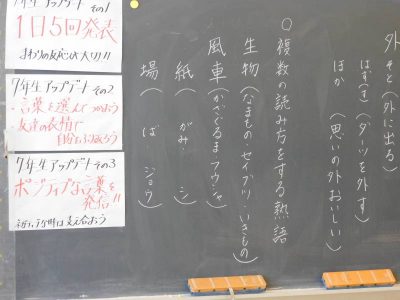 7年生アップデート その1
1日5回発表
まわりの反応も大切!!
7年生アップデート その2
・言葉を選んでつかおう
・友達の表情で
自分をふりかえろう
7年生アップデート その3
ポジティブな言葉を
発信!!
支え合おう
外 そと(外に出る)
はず(す)(ダーツを外す)
ほか (思いの外おいしい)
○複数の読み方をする熟語
生物(なまもの・セイブツ・いきもの)
風車(かざぐるま・フウシャ)
紙( がみ・シ )
場( ば ・ ジョウ )